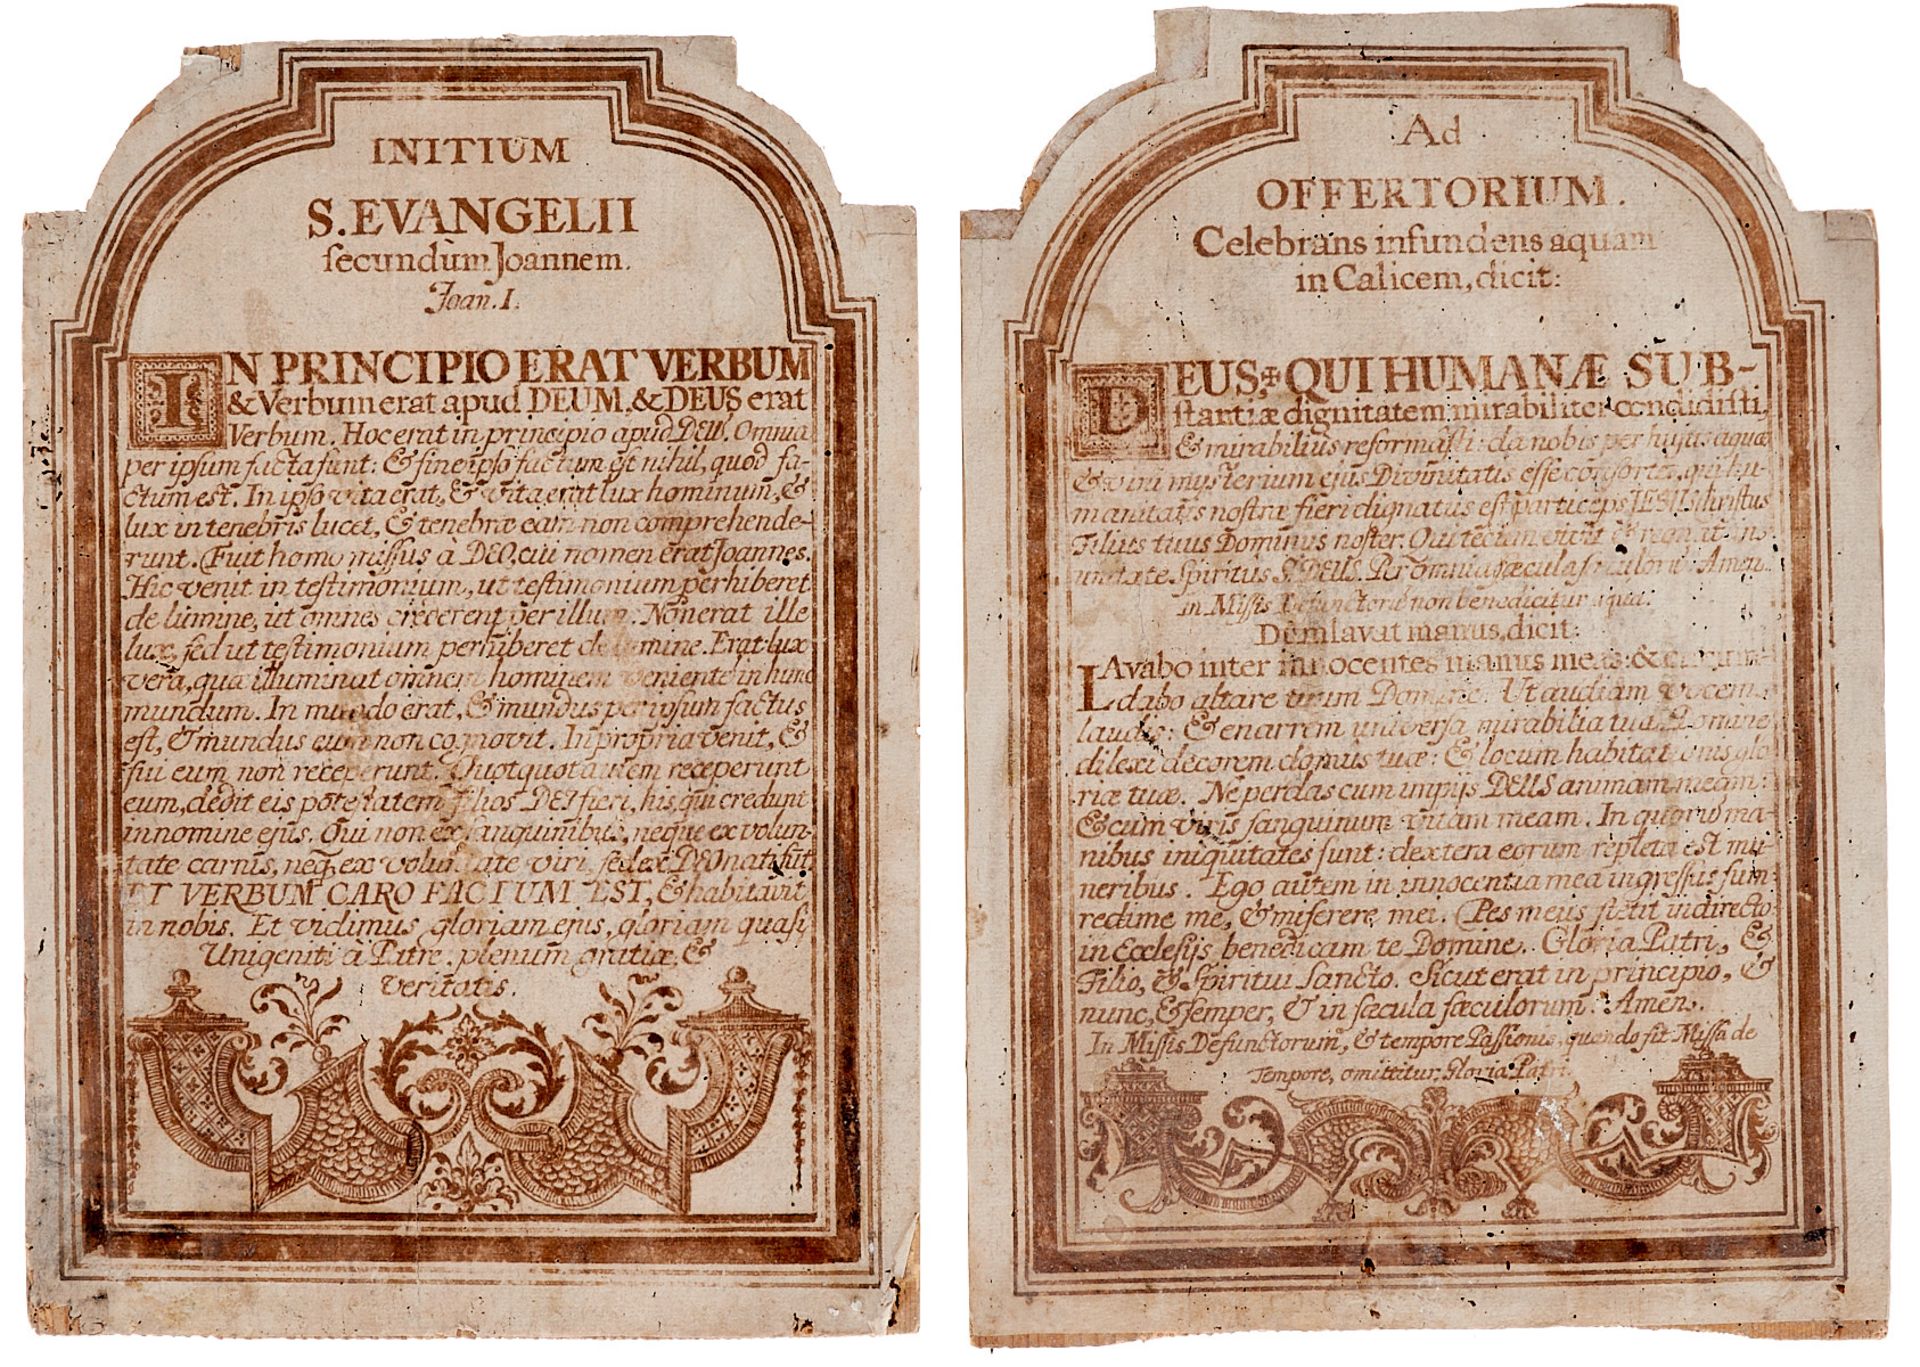 INITIUM
S. EVANGELII
secundùm Joannem.
Joan. I.
IN PRINCIPIO ERAT VERBUM
& Verbum erat apud DEUM, & DEUS erat
Verbum. Hoc erat in principio apud DEU. Omnia
per ipsum facta sunt: & sine ipso factum est nihil, quod fa-
ctum est. In ipso vita erat, & vita erat lux hominum, &
lux in tenebris lucet, & tenebræ eam non comprehende-
runt. Fuit homo missus à DEO, cui nomen erat Joannes.
Hic venit in testimonium, ut testimonium perhiberet
de lumine, ut omnes crederent per illum. Non erat ille
lux, sed ut testimonium perhiberet de lumine. Erat lux
vera, quæ illuminat omnem hominem veniente in hunc
mundum. In mundo erat, & mundus per ipsum factus
est, & mundus eum non cognovit. In propria venit, &
sui eum non receperunt. Quotquot autem receperunt
eum, dedit eis potestatem filios DEI fieri, his, qui credunt
in nomine ejus. Qui non ex sanguinibus, neque ex volun-
tate carnis, neq; ex voluntate viri, sed ex DEO nati sut
ET VERBUM CARO FACTUM EST, & habitavit
in nobis. Et vidimus gloriam ejus, gloriam quasi
Unigeniti à Patre, plenum gratiæ, &
veritatis.
Ad
OFFERTORIUM.
Celebrans infundens aquam
in Calicem, dicit:
DEUS, ✠ QUI HUMANÆ SUB-
stantiæ dignitatem mirabiliter condidisti,
& mirabilius reformasti: da nobis per hujus aquæ
& vini mysterium ejus Divinitatis esse consortes, qui hu-
manitatis nostræ fieri dignatus est particeps JESUS Christus
Filius tuus Dominus noster: Qui tecum vivit & regnat in
unitate Spiritus S. DEUS. Per omnia sæcula sæculorū. Amen.
in Missis Defunctorū non benedicitur aqua.
Dum lavat manus, dicit:
LAvabo inter innocentes manus meas: & circum-
dabo altare tuum Domine. Ut audiam vocem
laudis: & enarrem universa mirabilia tua. Domine
dilexi decorem domus tuæ: & locum habitationis glo
riæ tuæ. Ne perdas cum impijs DEUS animam meam:
& cum viris sanguinum vitam meam. In quorū ma-
nibus iniquitates sunt: dextera eorum repleta est mu-
neribus. Ego autem in innocentia mea ingressus sum:
redime me, & miserere mei. Pes meus stetit in directo:
in Ecclesijs benedicam te Domine. Gloria Patri, &
Filio, & Spiritui Sancto. Sicut erat in principio, &
nunc, & semper, & in sæcula sæculorum. Amen.
In Missis Defunctorum, & tempore Passionis, quando fit Missa de
Tempore, omittitur, Gloria Patri.